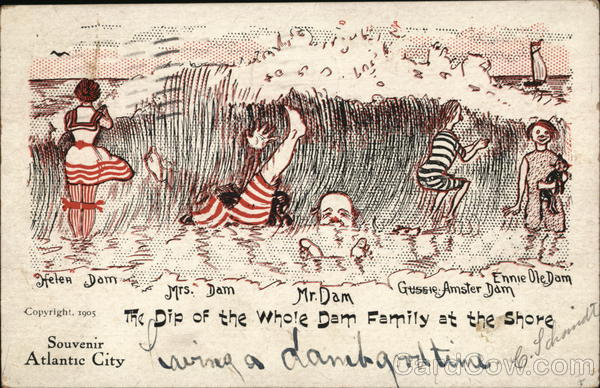 Helen Dam
Mrs. Dam
Mr. Dam
Gussie Amster Dam
Ennie Ole Dam
Copyright, 1905
The Dip of the Whole Dam Family at the Shore
Souvenir
Atlantic City
a damb good time
C. Schmidt
CardCow.com